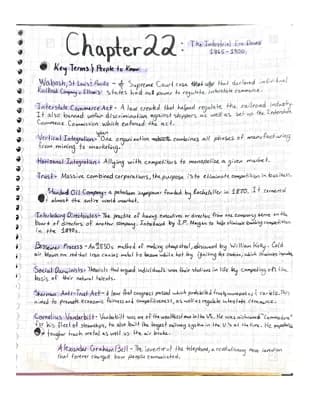 Chapter 22: The Industrial Era Dawns
1865-1900
Key Terms & People to Know
Wabash, St. Louis & Pacific - A Supreme Court case that declared individual
Railroad Company v. Illinois states had not power to regulate interstate commerce.
Interstate Commerce Act - A law created that helped regulate the railroad industry.
It also banned discrimination against shippers as well as set up the Interstate
Commerce Commission which enforced the act.
Vertical Integration - When One organization combines all phases of manufacturing
from mining to marketing.
Horizontal Integration - Allying with competitors to monopolize a given market.
Trust - Massive combined corporations, the purpose is to eliminate competition in business.
Standard Oil Company - a petroleum supergiant funded by Rockefeller in 1870. It cornered
almost the entire world market.
Interlocking Directorates - The practice of having executives or directors from one company serve on the
Board of directors of another company. Introduced by J.P. Morgan to help eliminate banking competition
in the 1890s.
Bessemer Process - An 1850s method of making cheap steel, discovered by William Kelly. Cold
air blown on red-hot iron causes metal to become white hot by igniting the carbon, which eliminates impurities
Social Darwinists - Theorists that argued individuals won their stations in life by competing off the
basis of their natural talents.
Sherman Anti-Trust Act - A law that congress passed which prohibited trusts, monopolies, & cartels. This
aimed to promote economic fairness and competitiveness, as well as regulate interstate commerce.
Cornelius Vanderbilt - Vanderbilt was one of the wealthiest men in the US. He was nicknamed "Commodore"
for his fleet of steamships, he also built the largest railway system in the U.S at the time. He
tougher track metal as well as the air brake.
Alexander Graham Bell - The inventor of the telephone, a revolutionary new invention
that forever changed how people communicated.